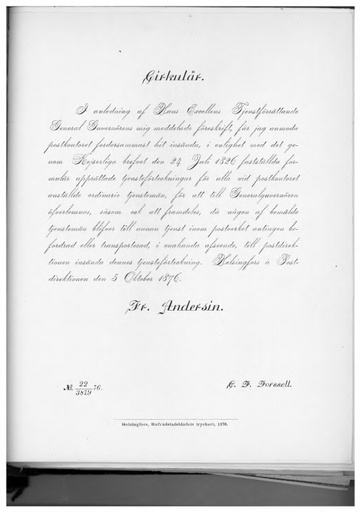 Cirkulär.
I anledning af Hans Excellens Tjenstförrättande
General Guvernörens mig meddelade föreskrift, får jag anmoda
postkontoret fordersammast hit insända, i enlighet med det ge-
nom Kejserliga brefvet den 24 Juli 1826 fastställda for-
mulär upprättade tjensteförteckningar för alla vid postkontoret
anställde ordinarie tjenstemän, för att till Generalguvernören
öfverlemnas, såsom ock att framdeles, då någon af bemälde
tjenstemän blifver till annan tjenst inom postverket antingen be-
fordrad eller transporterad, i enahanda afseende, till postdirek-
tionen insända dennes tjensteförteckning. Helsingfors å Post-
direktionen den 5 Oktober 1876.
Fr. Andersin.
№ 22/3879 76.
F. Forssell.
Helsingfors, Hufvudstadsbladets tryckeri, 1876.